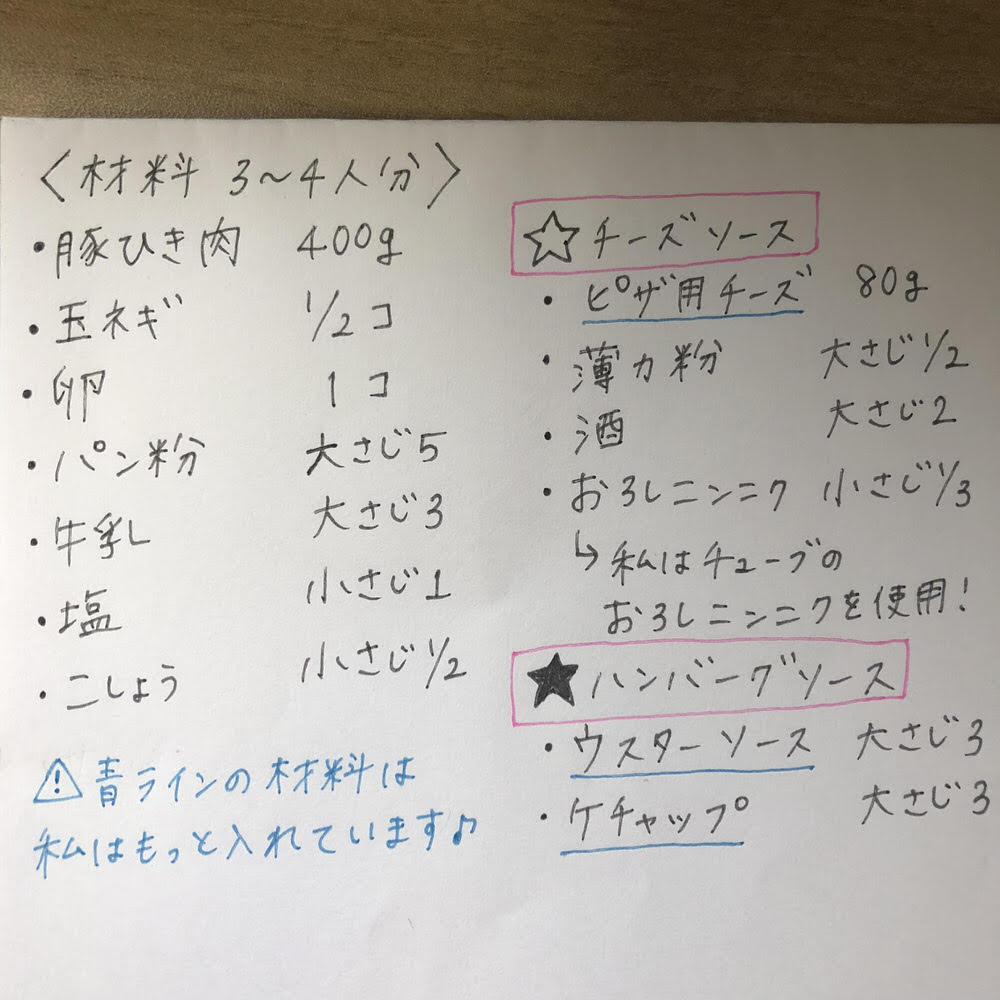 〈材料 3〜4人分〉
・豚ひき肉 400g
・玉ネギ 1/2コ
・卵 1コ
・パン粉 大さじ5
・牛乳 大さじ3
・塩 小さじ1
・こしょう 小さじ1/2
⚠青ラインの材料は
私はもっと入れています♪
☆チーズソース
・ピザ用チーズ 80g
・薄力粉 大さじ1/2
・酒 大さじ2
・おろしニンニク 小さじ1/3
↳私はチューブの
おろしニンニクを使用!
★ハンバーグソース
・ウスターソース 大さじ3
・ケチャップ 大さじ3